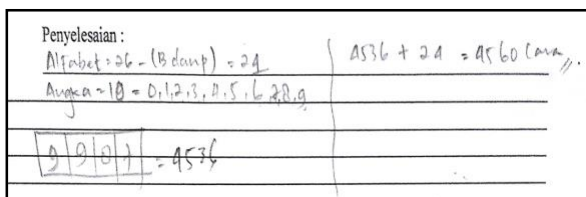 Penyelesaian :
Alfabet = 26 - (B dan P) = 24
Angka = 10 = 0,1,2,3,4,5,6,7,8,9
9 9 8 7 = 4536
4536 + 24 = 4560 Cara //.